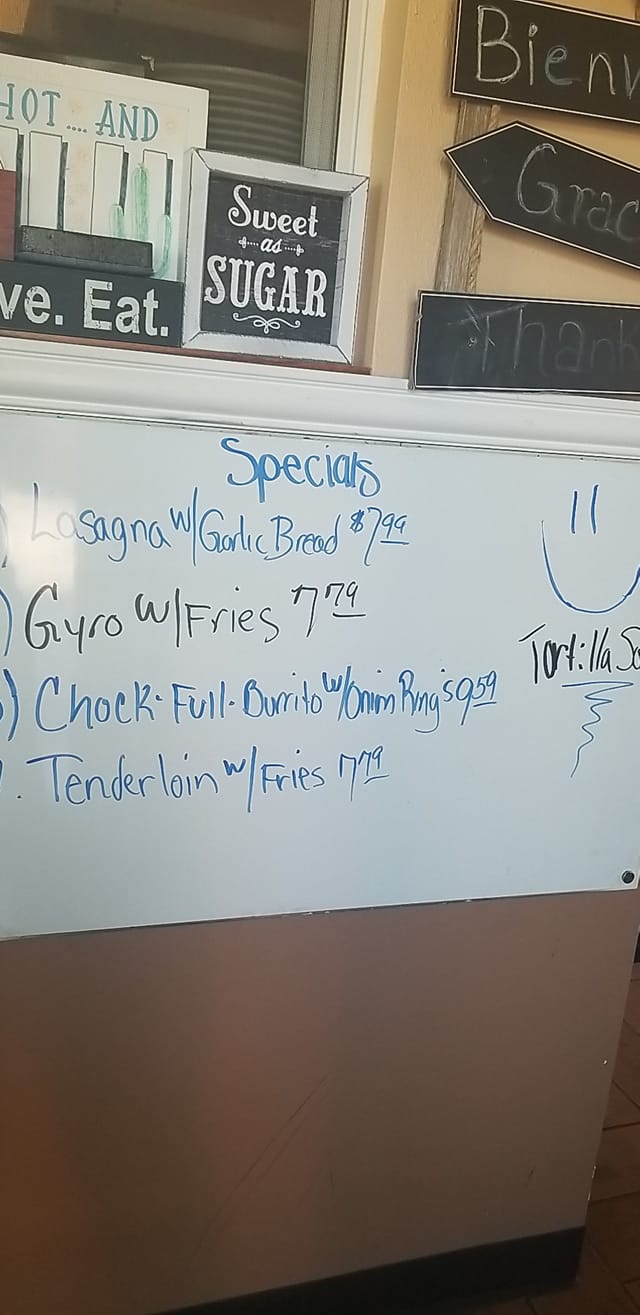 HOT.... AND
ve. Eat.
Sweet
as
SUGAR
Bienv
Grac
Thank
Specials
) Lasagna w/Garlic Bread $7.99
) Gyro w/Fries 7.79
) Chock-Full-Burrito w/Onion Ring $9.59
. Tenderloin w/Fries 7.79
Tortilla So